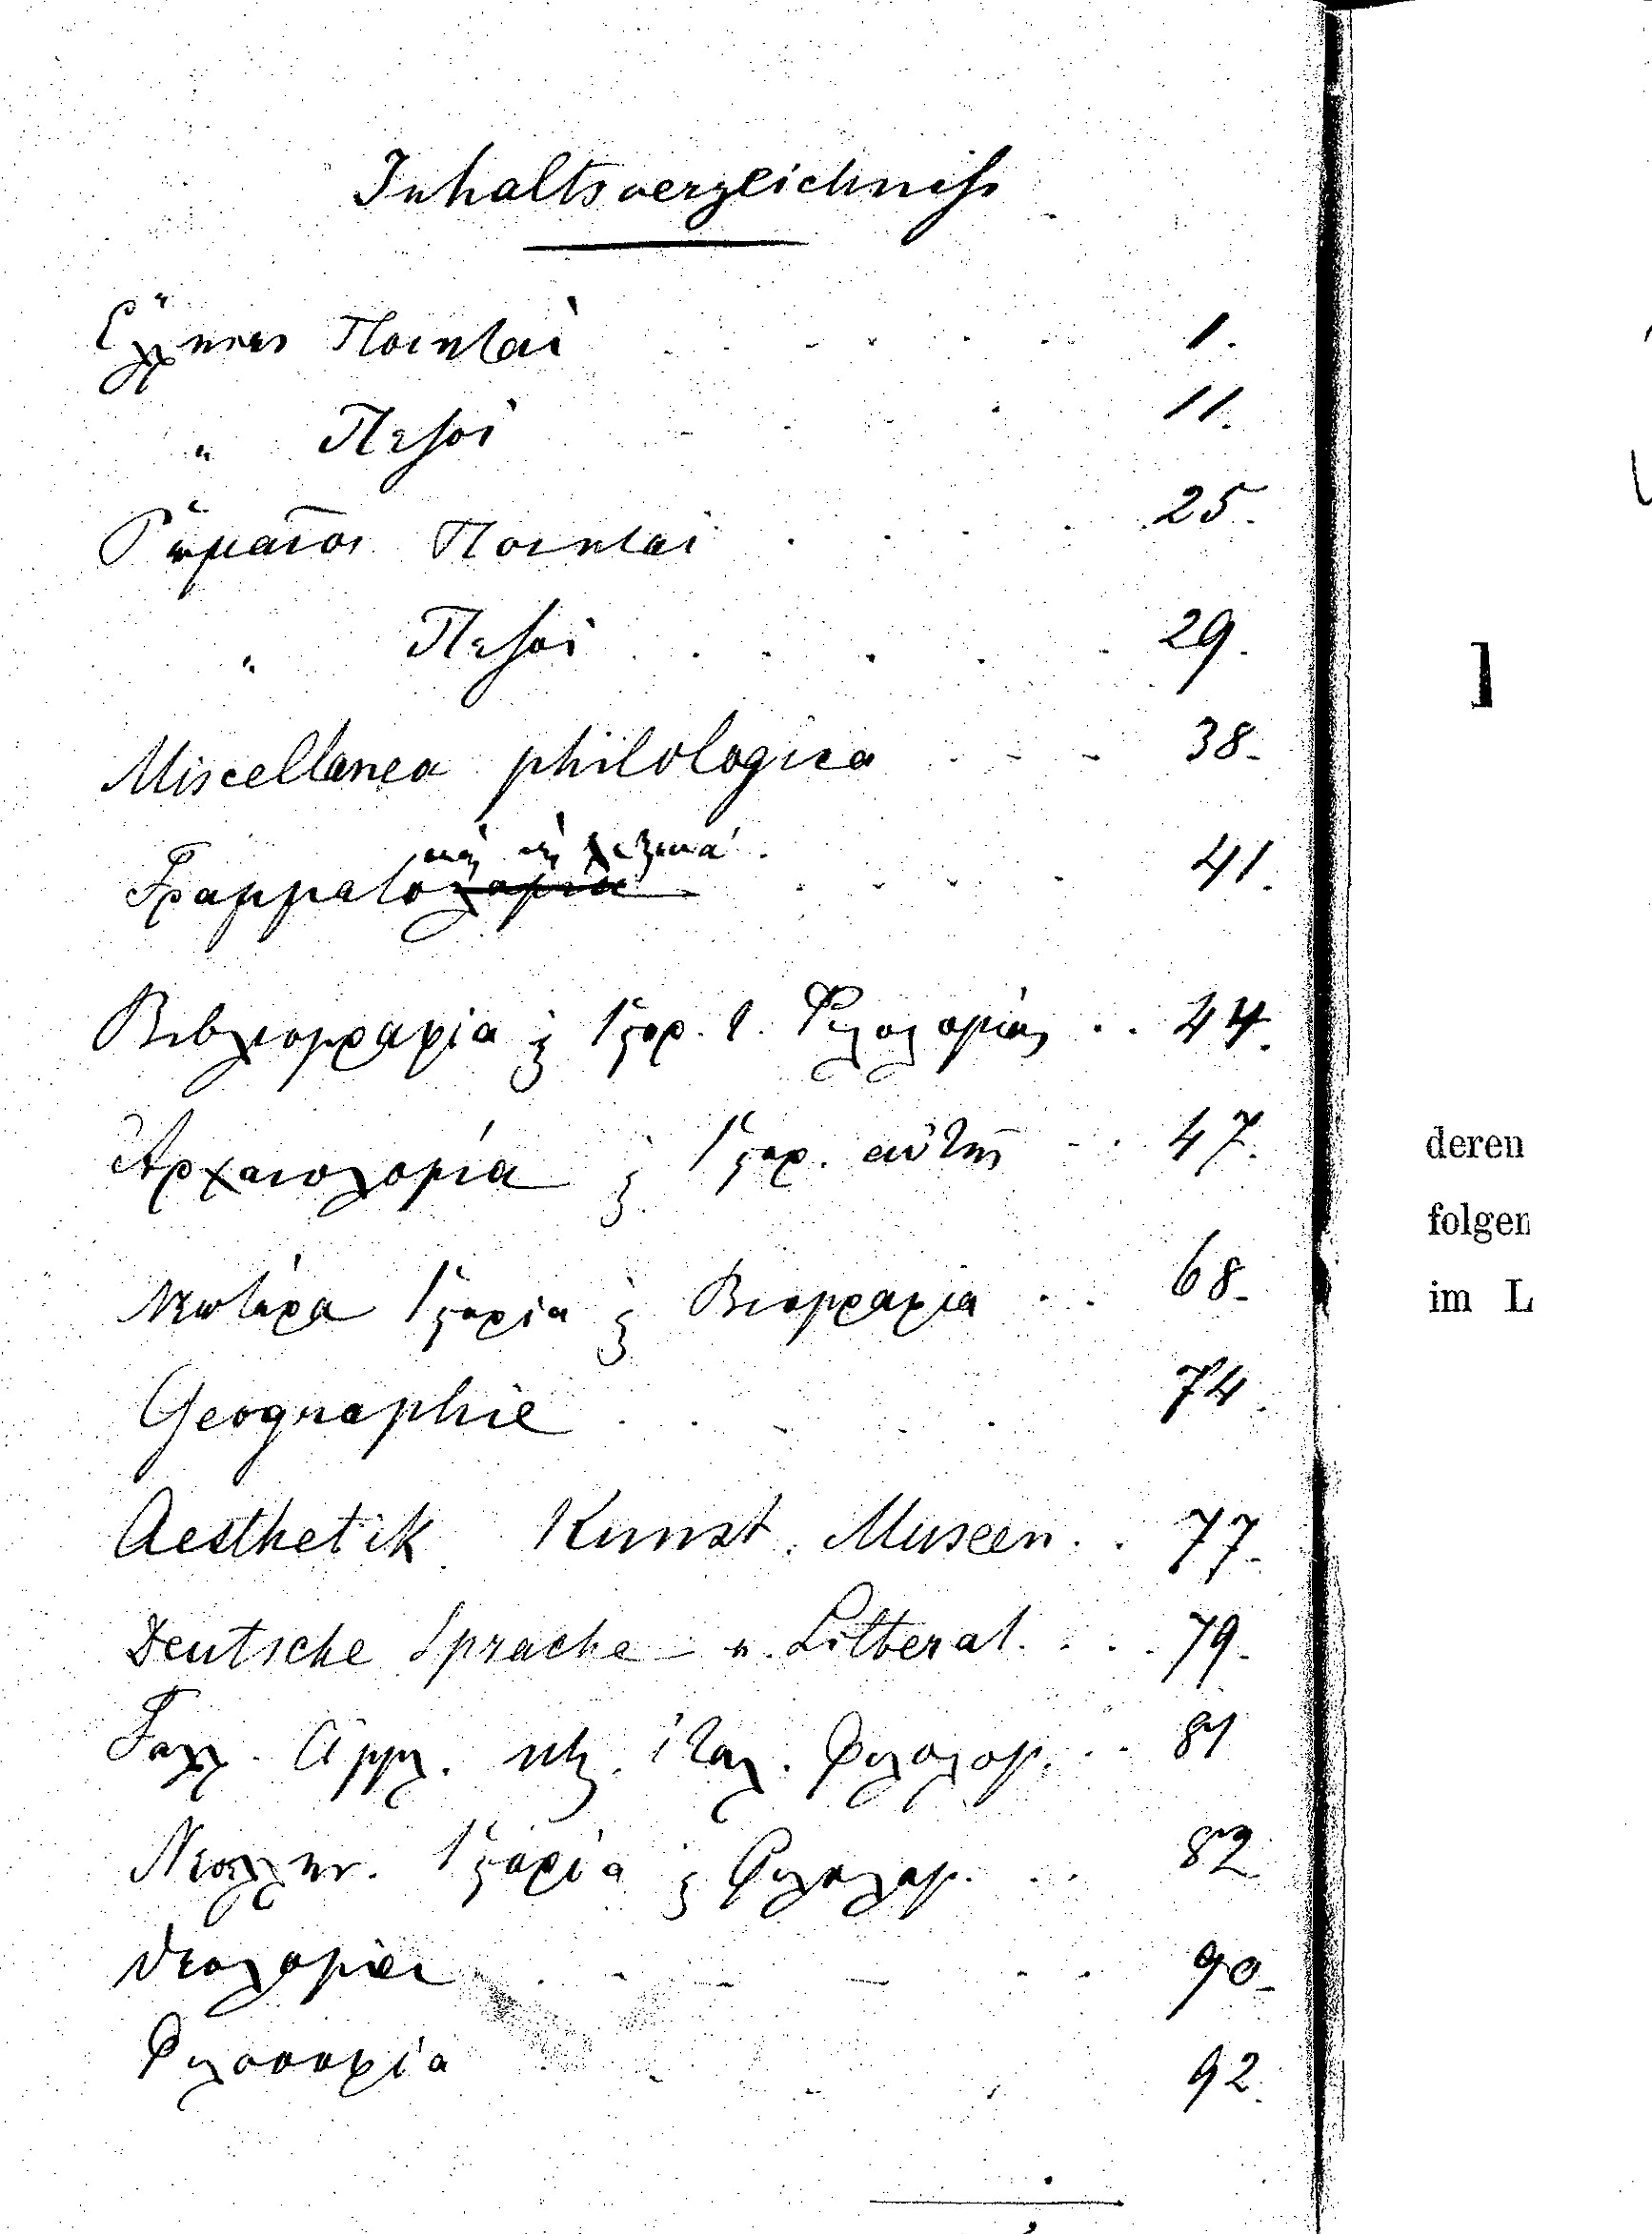 Inhaltsverzeichniß
Ἕλληνες Ποιηταὶ 1.
" Πεζοὶ 11.
Ῥωμαῖοι Ποιηταὶ 25.
" Πεζοὶ 29.
Miscellanea philologica 38.
καὶ λεξικά.
Γραμματολογία 41.
Βιβλιογραφία ϗ Ἱστορ. τ. Φιλολογίας 44.
Ἀρχαιολογία ϗ Ἱστορ. αὐτῆς 47.
Νεωτέρα Ἱστορία ϗ Βιογραφία 68.
Geographie 74.
Aesthetik. Kunst. Museen 77.
Deutsche Sprache u. Litterat. 79.
Γαλλ. Ἀγγλ. ϗ Ἰταλ. Φιλολογ. 81
Νεοελλην. Ἱστορία ϗ Φιλολογ. 82.
Θεολογία 90.
Φιλοσοφία 92.
deren
folgen
im L